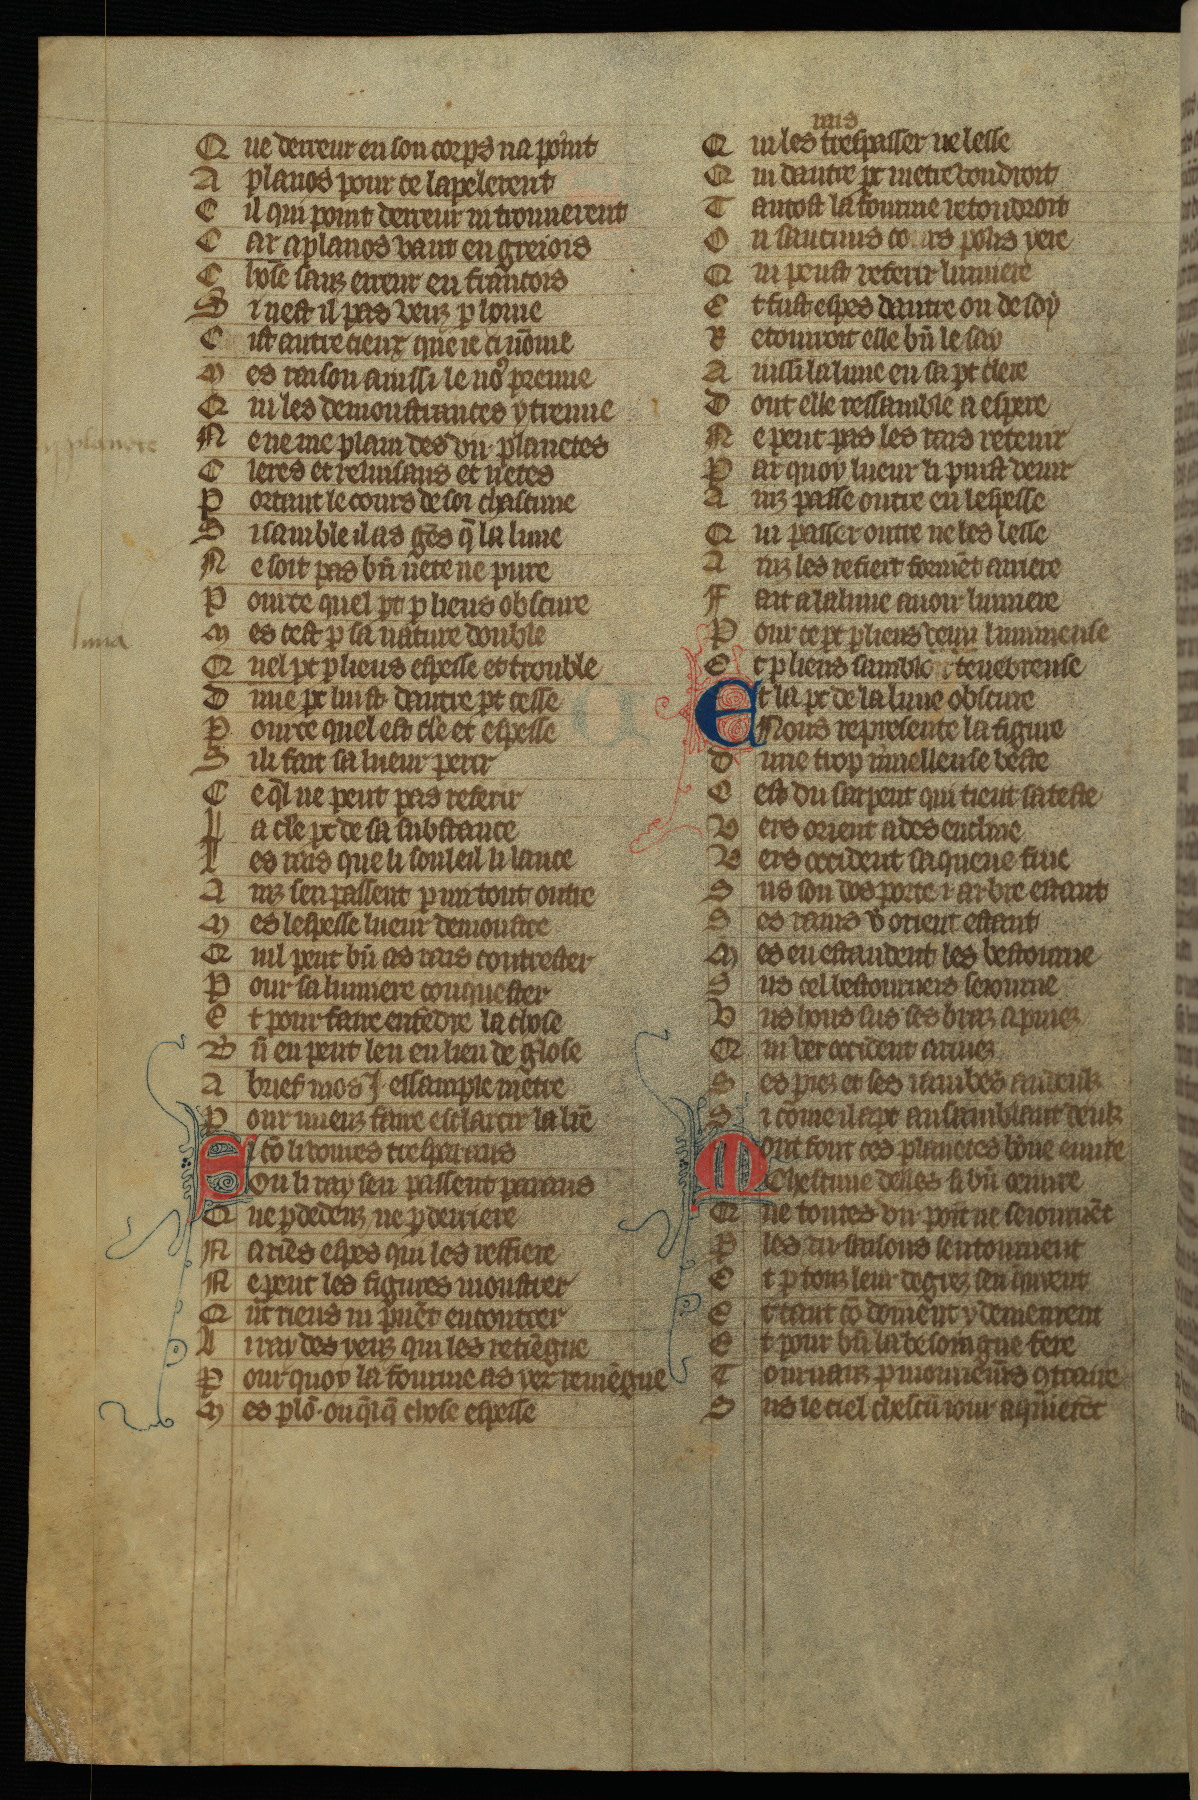 Que derreur en son corps na point
Aplanos pour ce lapelerent
Cil qui point derreur ni trouuerent
Car aplanos vaut en greiois
Chose sanz erreur en francois
Si nest il pas veuz p lome
Cist autre cieux que ie ci nōme
Mes raison ainssi le no9 prenne
Qui les demonstrances y trenne
Ne ne me plain des vii planetes
Cleres et reluisans et netes
Portant le cours de soi chascune
Si samble il as gēs q̄ la lune
Ne soit pas bn̄ nete ne pure
Pource quel pt p lieus obscure
Mes cest p sa nature double
Quel pt p lieus espesse et trouble
Dune pt luist dautre pt cesse
Pource quel est cle et espesse
Si li fait sa lueur perir
Ce q̄l ne peut pas referir
La cle pt de sa substance
Les rais que li souleil li lance
Ainz sen passent p mi tout outre
Mes lespesse lueur demonstre
Qui peut bn̄ as rais contrester
Pour sa lumiere conquester
Et pour faire entēdre la chose
Bn̄ en peut len en lieu de glose
A brief mos j essample metre
Pour mieuz faire esclarcir la lr̄e
Si cō li voirres trespurans
Ou li ray sen passent parans
Que p dedenz ne p derriere
Na riēs espes qui les reffiere
Ne peut les figures moustrer
Qnt riens ni peuēt encontrer
Li ray des yeux qui les retiēgne
Pour quoy la fourme as yex reuiēgne
Mes plō ou q̄lq̄ chose espesse
rais
Qui les trespasser ne lesse
Qui dautre pt metre voudroit
Tantost la fourme retoudroit
Ou saucuns cors polis yere
Qui peust referir lumiere
Et fust espes dautre ou de soy
Retourroit elle bn̄ le say
Aussi la lune en sa pt clere
Dont elle ressamble a espere
Ne peut pas les rais retenir
Par quoy lueur li puist venir
Ainz passe outre en lespesse
Qui passer outre ne les lesse
Ainz les refiert formēt arriere
Fait a la lune auoir lumiere
Pour ce pt p lieus lumineuse
Et p lieus samble tenebreuse
Et la pt de la lune obscure
Nous represente la figure
Dune trop m̄uelleuse beste
Cest du serpent qui tient sa teste
Vers orient ades encline
Vers occident sa queue fine
Sus son dos porte i arbre estant
Ses rains v̄s orient estant
Mes en estandent les bestourne
Sus cel bestourneis seiourne
Vns hons sus ses braz apuiez
Qui ver occident a ruiez
Ses piez et ses iambes andeus
Si come il apt au samblant deus
Mout font ces planetes bōne euure
Chascune delles si bn̄ oeuure
Que toutes vii point ne seiournēt
Ples xii maisons sen tournent
Et p touz leur degrez sen queurent
Et tant cō doiuent y demeurent
Et pour bn̄ la besoingne fere
Tournanz p mouuemēs 9traire
Sus le ciel chascū iour aquierēt
luna
planete